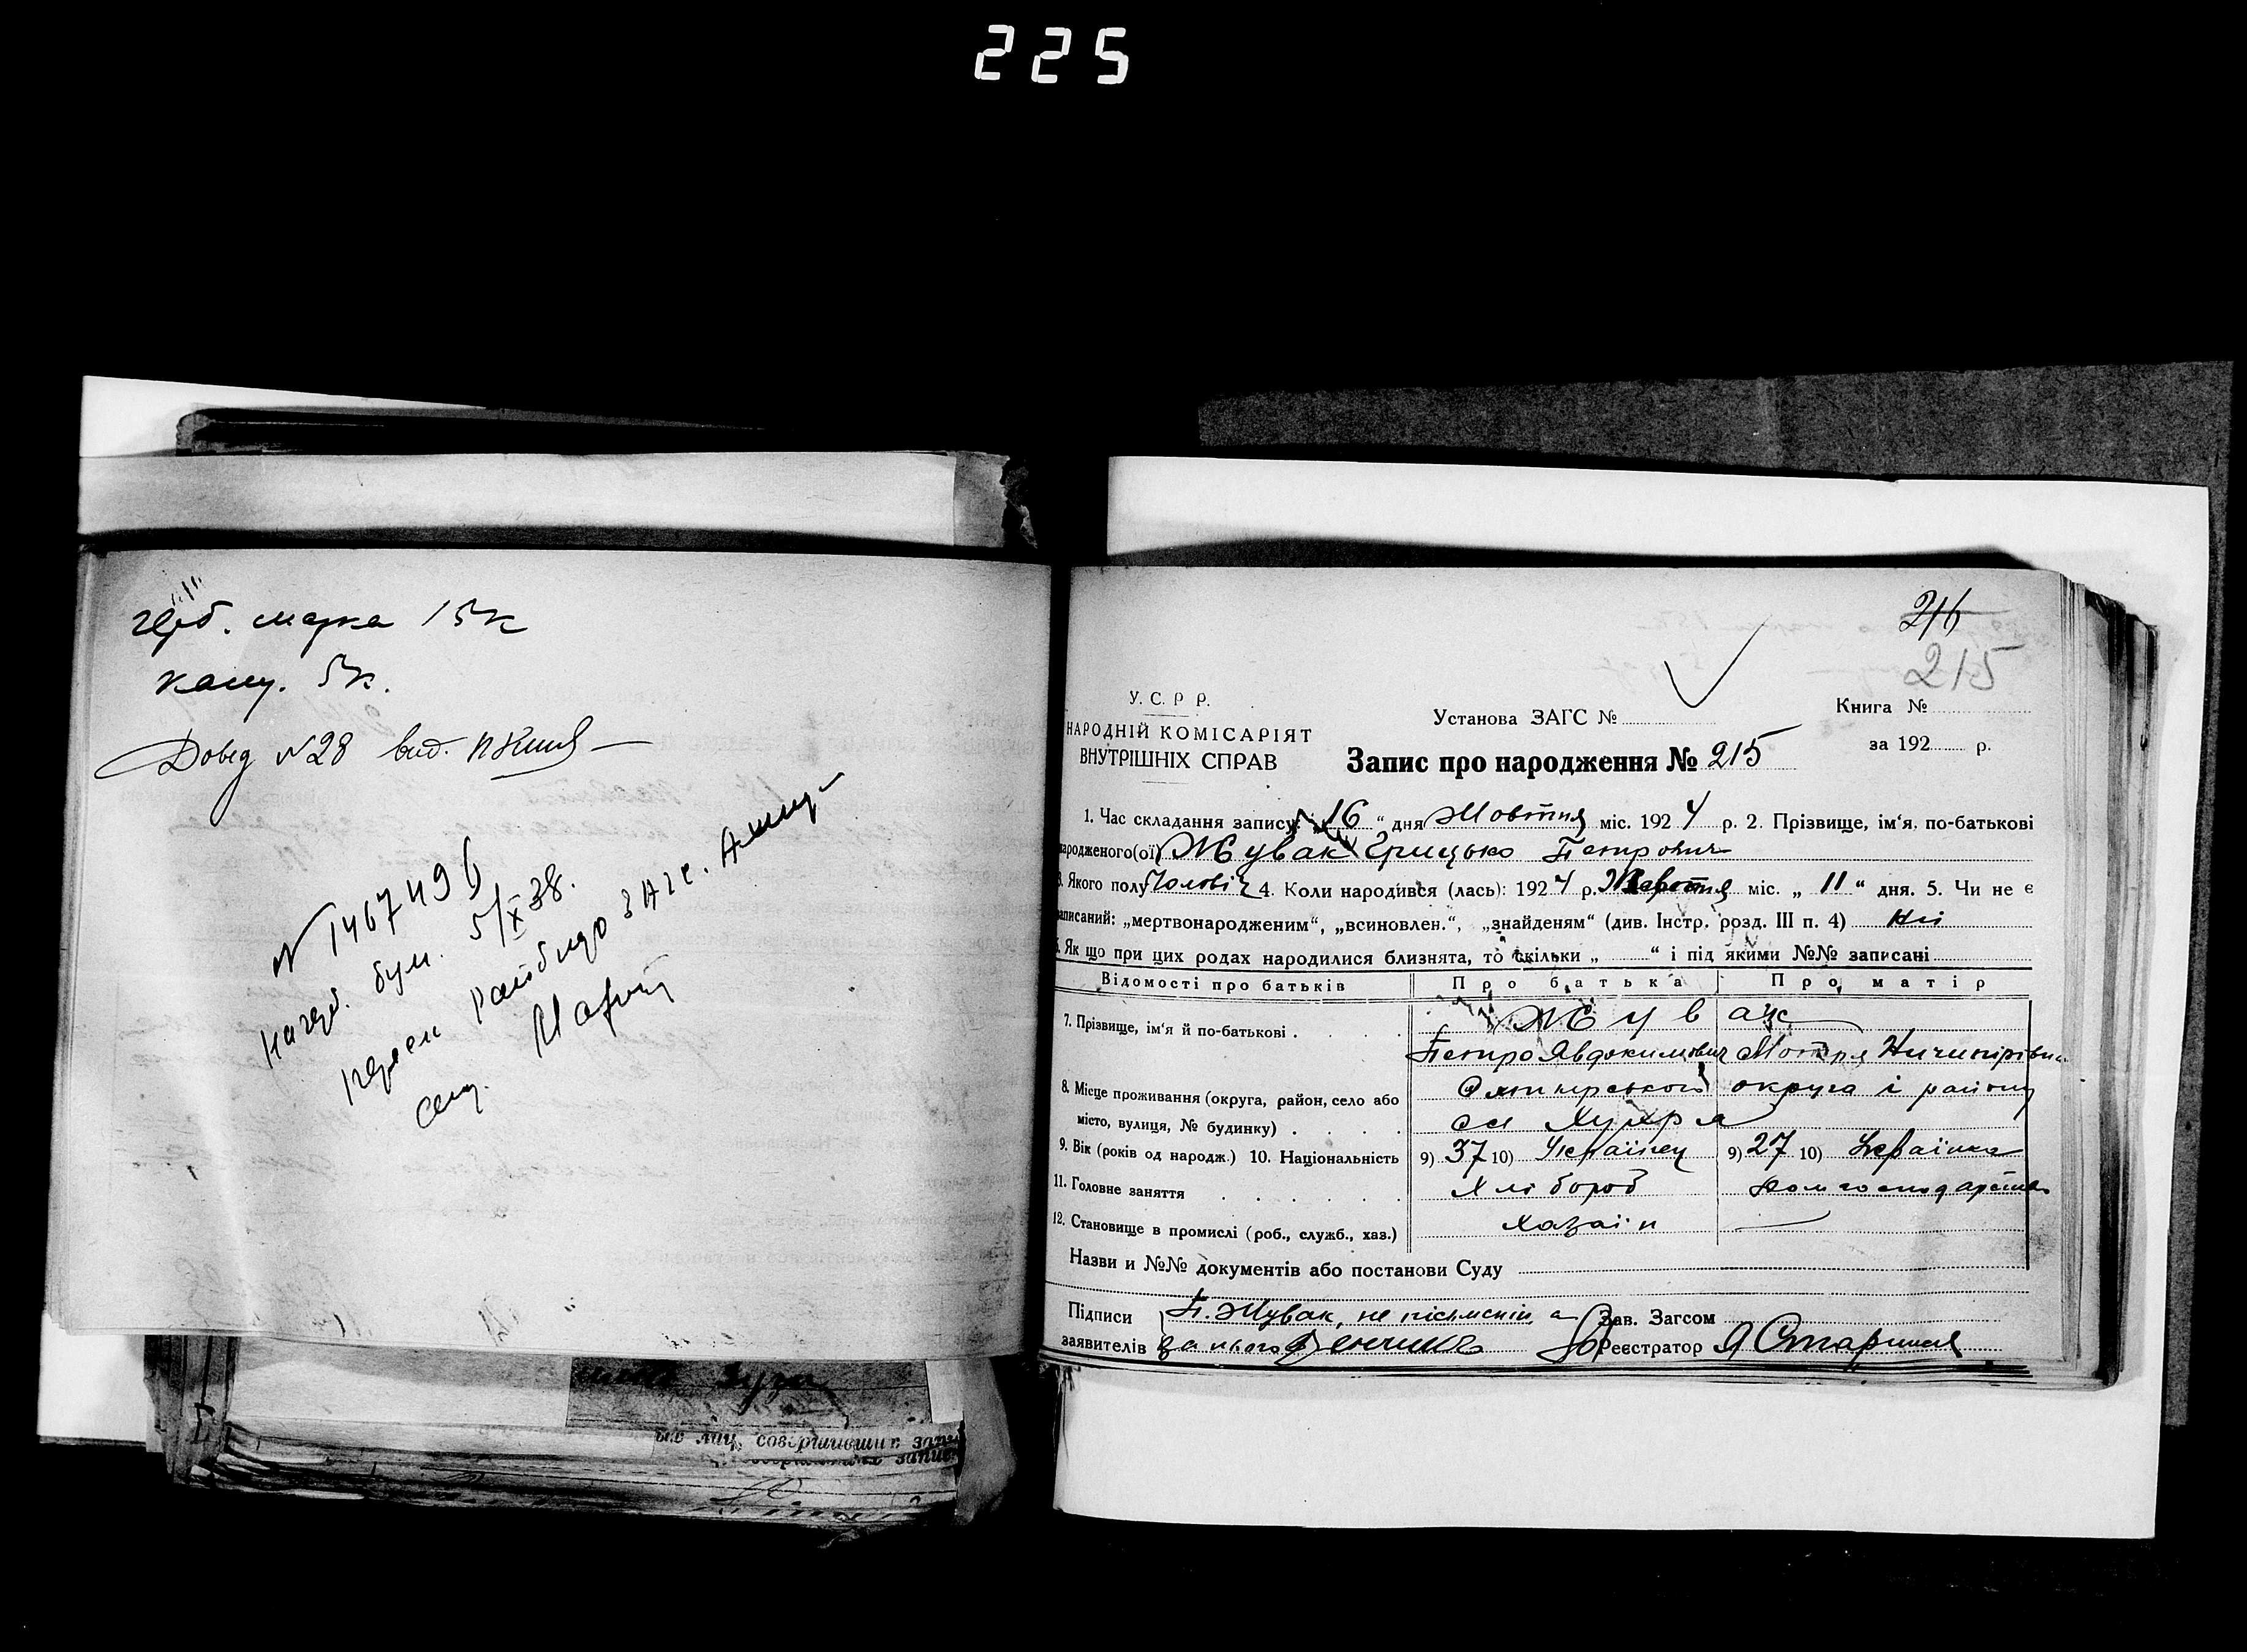 225
герб. марка 15к
канц. 5к.
Довід №28 вид.
№ 1467496
на герб. бум. 5/X 38.
216
215
У.С.Р Р.
НАРОДНІЙ КОМІСАРІЯТ
ВНУТРІШНІХ СПРАВ
Установа ЗАГС №
Книга №
за 192 р.
Запис про народження № 215
1. Час складання запису: „16“ дня Жовтня міс. 1924 р. 2. Прізвище, ім'я, по-батькові
народженого(ої) Жувак Грицько Петрович
3. Якого полу Чоловіч 4. Коли народився (лась): 1924 р. Жовтня міс. „ 11 “ дня. 5. Чи не є
записаний: „мертвонародженим“, „всиновлен.“, „знайденям“ (див. Інстр. розд. III п. 4) Ні
6. Як що при цих родах народилися близнята, то скільки „ “ і під якими №№ записані
Відомості про батьків Про батька Про матір
7. Прізвище, ім'я й по-батькові . . . . Жувак
Петро Явдокимович Мотря Ничипірівна
8. Місце проживання (округа, район, село або
місто, вулиця, № будинку) . . . .
округа і району
Хухря
9. Вік (років од народж.) 10. Національність 9) 37 10) Українец 9) 27 10) Українка
11. Головне заняття . . . . . . Хлібороб Дом господарства
12. Становище в промислі (роб., служб., хаз.) Хазаїн
Назви и №№ документів або постанови Суду
Підписи П. Жувак, не письмений, а Зав. Загсом
заявителів за нього Реєстратор
совершивших запи